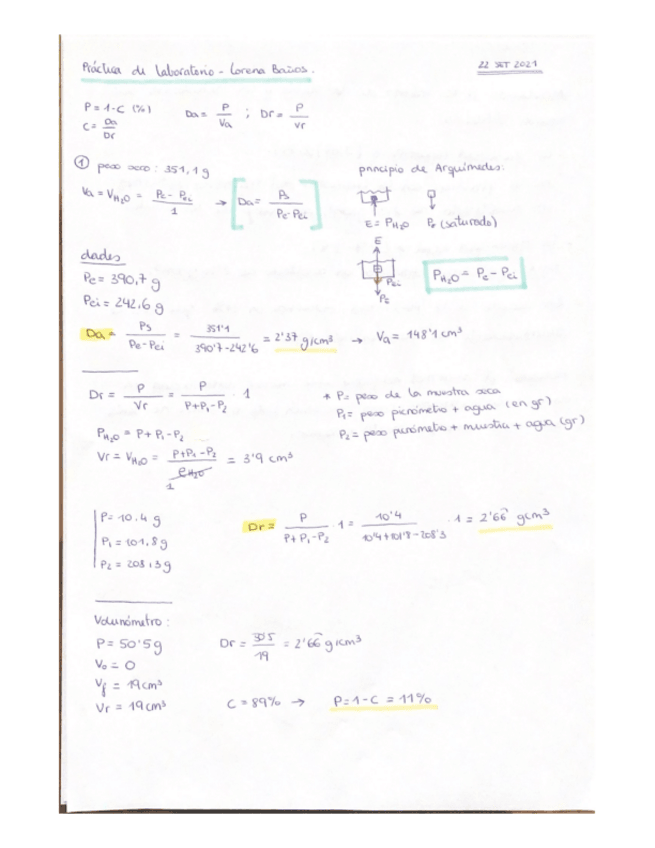 Práctica de laboratorio - Lorena Baños.
22 SET 2021
P = 1-C (%)
C = Da / Dr
Da = P / Va ; Dr = P / Vr
① peso seco : 351,1 g
Va = V H₂O = Pe - Pei / 1 → [ Da = Ps / Pe-Pei ]
principio de Arquímedes:
E = P H₂O Pe (saturado)
E
Pei
Pe
P H₂O = Pe - Pei
dades
Pe = 390,7 g
Pei = 242,6 g
Da = Ps / Pe-Pei = 351'1 / 390'7-242'6 = 2'37 g/cm³ → Va = 148'1 cm³
Dr = P / Vr = P / P+P₁-P₂ · 1
* P = peso de la muestra seca
P₁ = peso picnómetro + agua (en gr)
P₂ = peso picnómetro + muestra + agua (gr)
P H₂O = P + P₁ - P₂
Vr = V H₂O = P+P₁-P₂ / ρ H₂O = 3'9 cm³
1
P = 10,4 g
P₁ = 101,8 g
P₂ = 208,3 g
Dr = P / P+P₁-P₂ · 1 = 10'4 / 10'4+101'8-208'3 · 1 = 2'66 g/cm³
Volumómetro :
P = 50'5 g
V₀ = 0
Vf = 19 cm³
Vr = 19 cm³
Dr = 50'5 / 19 = 2'66 g/cm³
C = 89% → P = 1-C = 11%